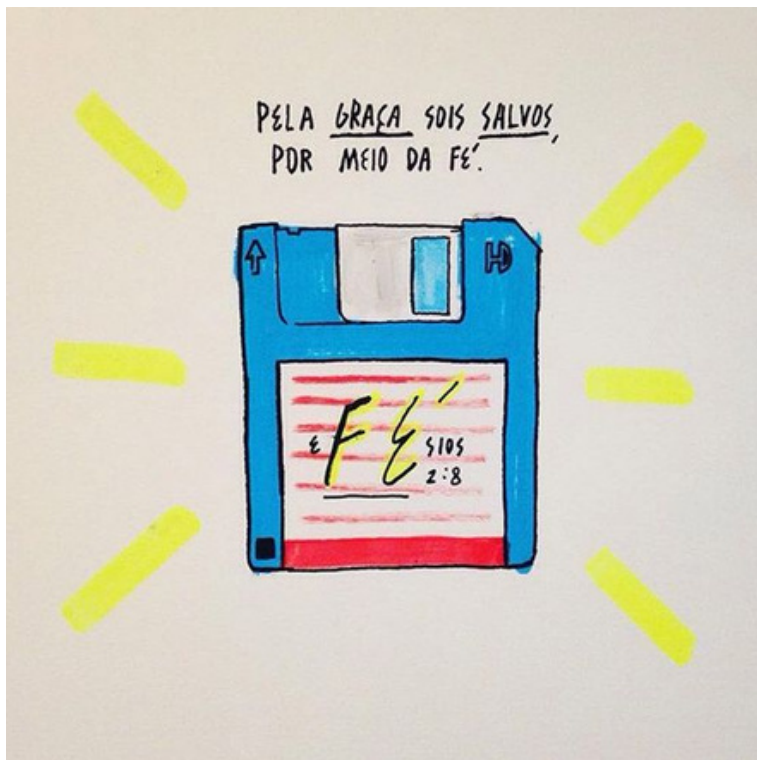 PELA GRAÇA SOIS SALVOS,
POR MEIO DA FÉ.
HD
E FÉ SIOS
2:8